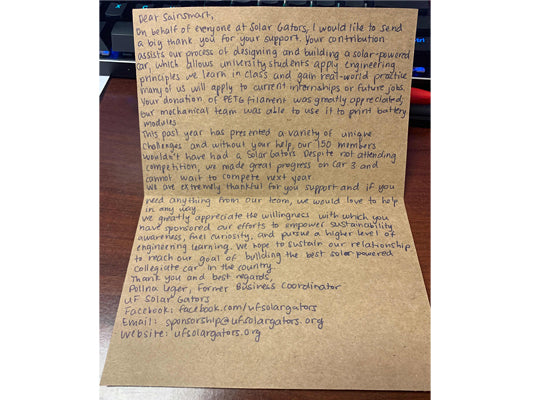 Dear Sainsmart,
On behalf of everyone at Solar Gators, I would like to send
a big thank you for your support. Your contribution
assists our process of designing and building a solar-powered
car, which allows university students apply engineering
principles we learn in class and gain real-world practice
many of us will apply to current internships or future jobs.
Your donation of PETG filament was greatly appreciated;
our mechanical team was able to use it to print battery
modules.
This past year has presented a variety of unique
challenges and without your help, our 150 members
wouldn't have had a Solar Gators. Despite not attending
competition, we made great progress on Car 3 and
cannot wait to compete next year.
We are extremely thankful for you support and if you
need anything from our team, we would love to help
in any way.
We greatly appreciate the willingness with which you
have sponsored our efforts to empower sustainability
awareness, fuel curiosity, and pursue a higher level of
engineering learning. We hope to sustain our relationship
to reach our goal of building the best solar powered
collegiate car in the country.
Thank you and best regards,
Polina Uger, Former Business Coordinator
UF Solar Gators
Facebook: facebook.com/ufsolargators
Email: sponsorship@ufsolargators.org
Website: ufsolargators.org